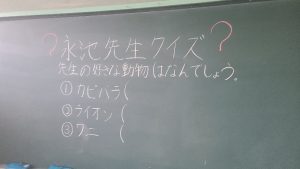 ？永池先生クイズ？
先生の好きな動物はなんでしょう。
①カピバラ（
②ライオン（
③ワニ　（